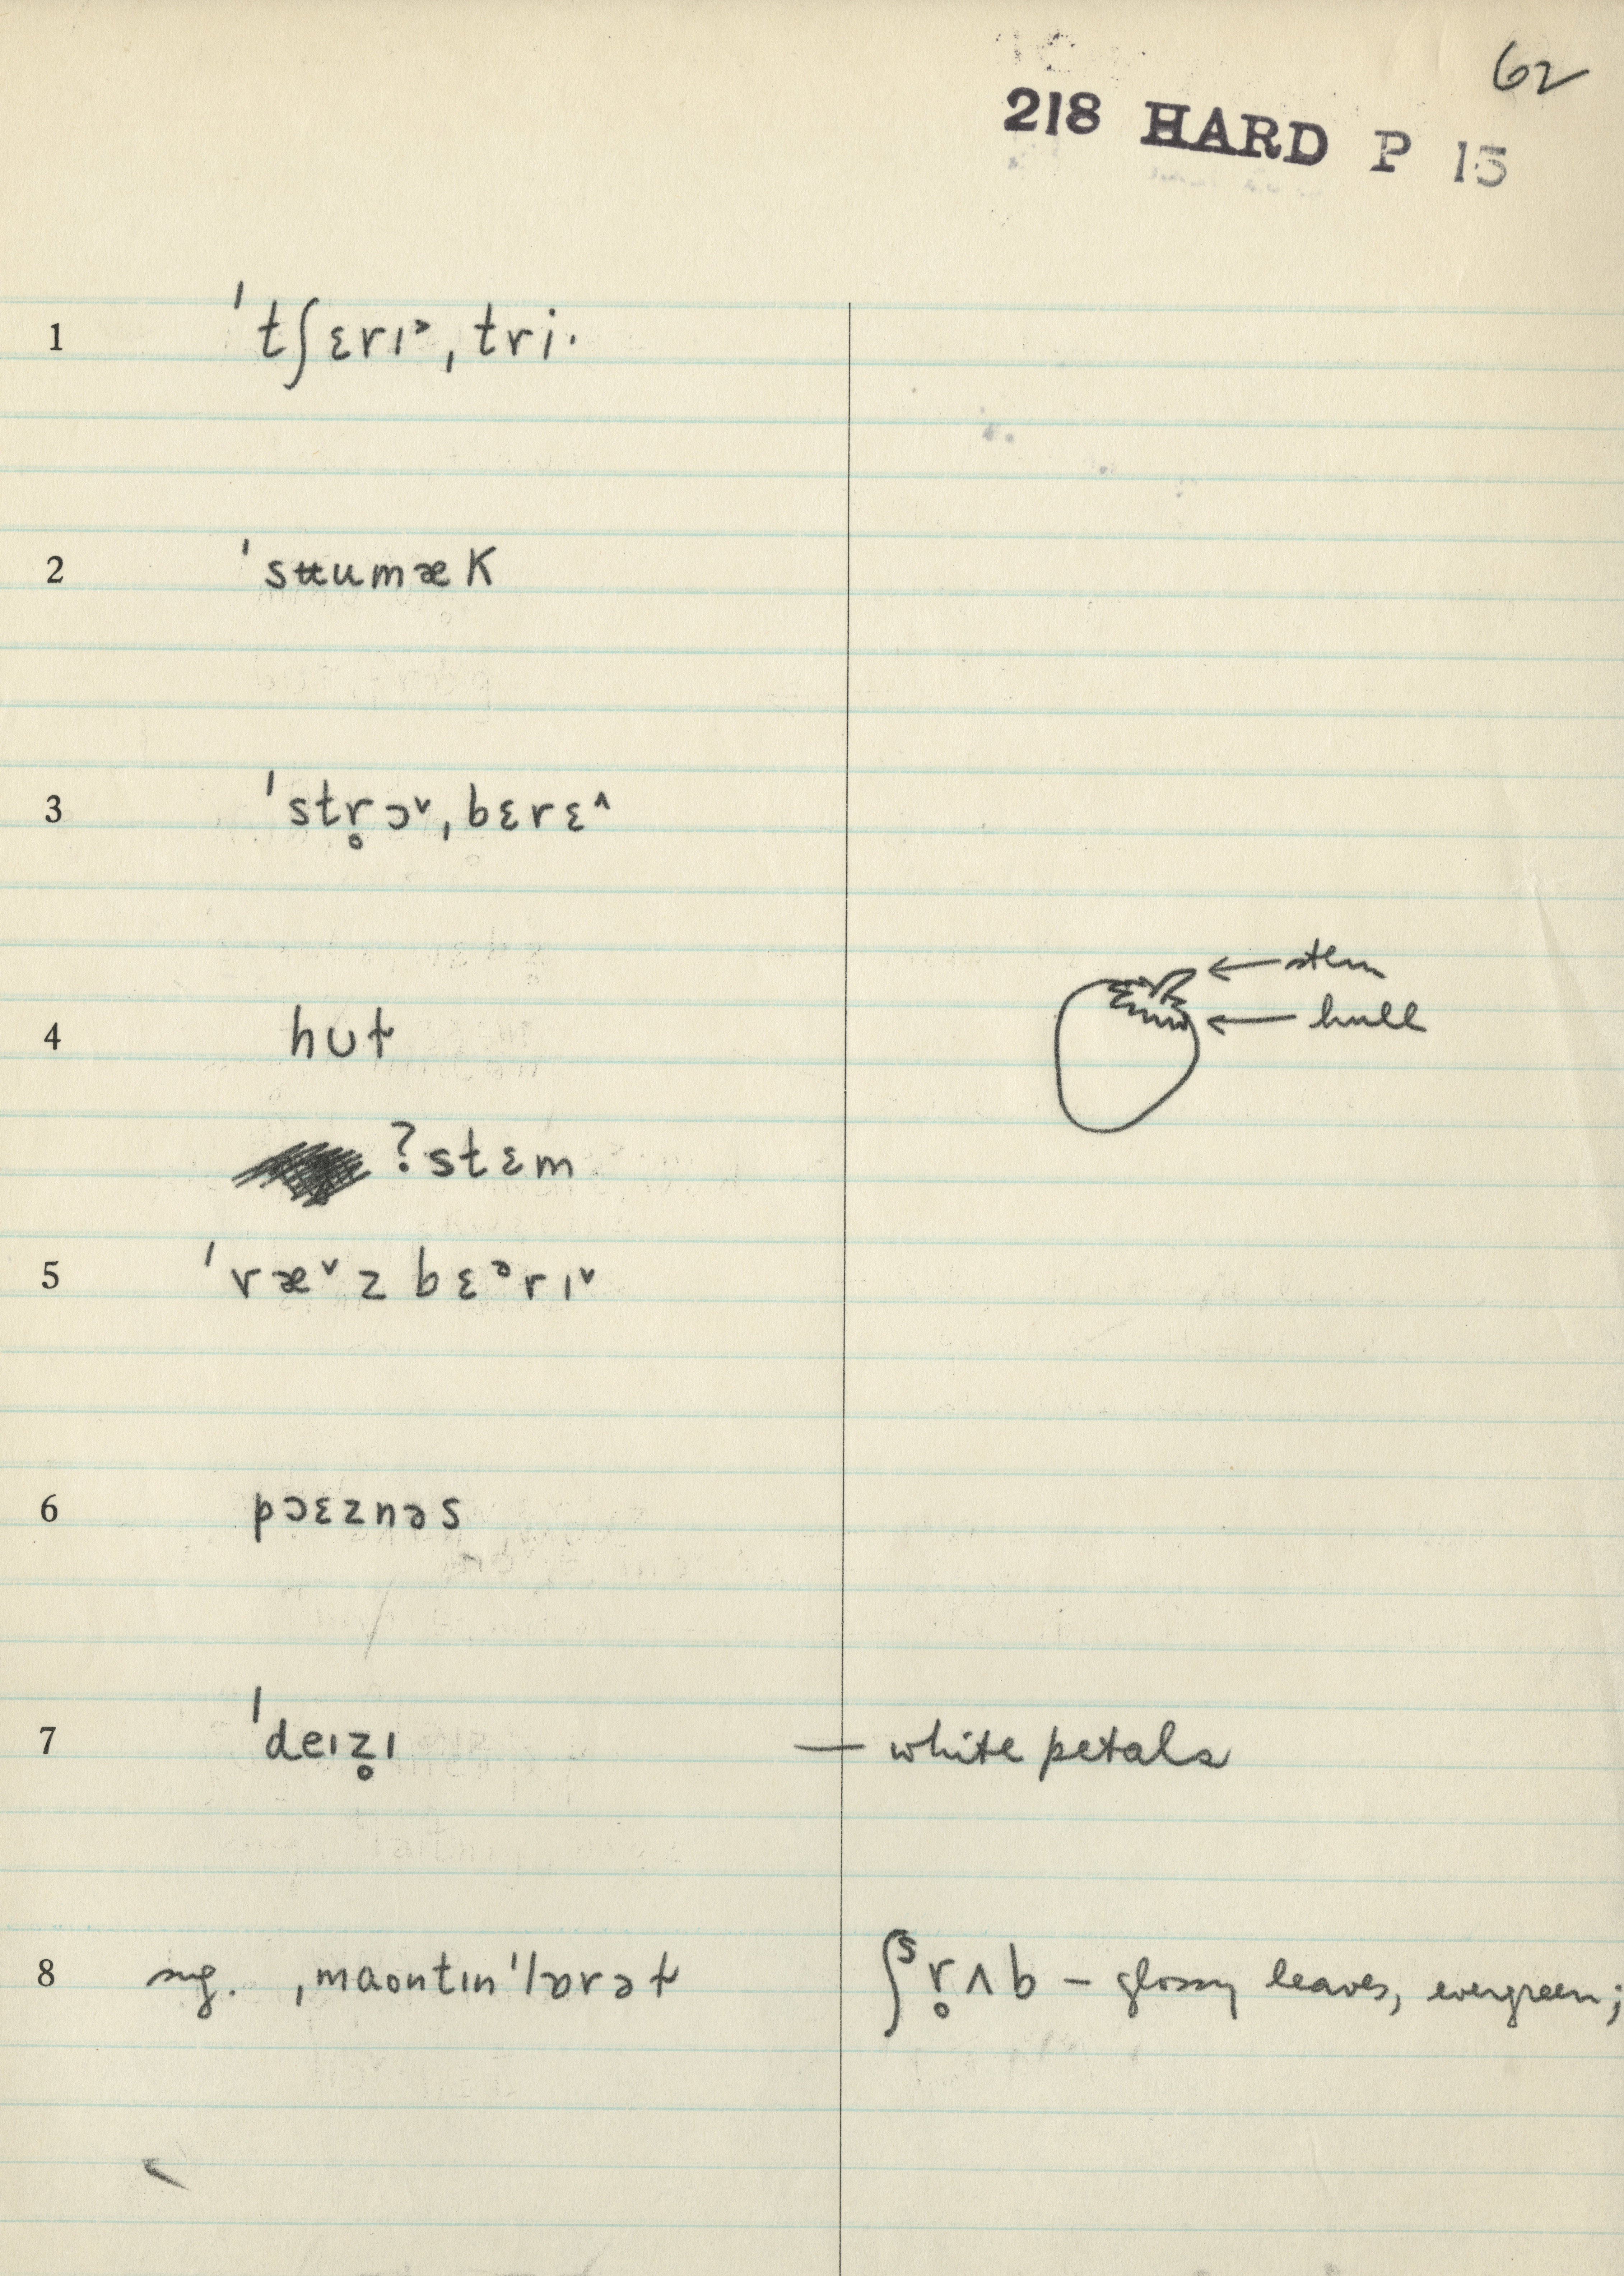 62
218 HARD P 15
1 ˈtʃɛrɪ˃ˌtri·
2 ˈsʉumæK
3 ˈstr̥ɔ˅ˌbɛrɛ˄
stem
4 hʊɫ hull
?stɛm
5 ˈræ˅zbɛᵊrɪ˅
6 pɔɛznəs
7 ˈdeɪz̥ɪ — white petals
8 sug. ˌmaʊntɪnˈlɒrəɫ ʃˢr̥ʌb – glossy leaves, evergreen;